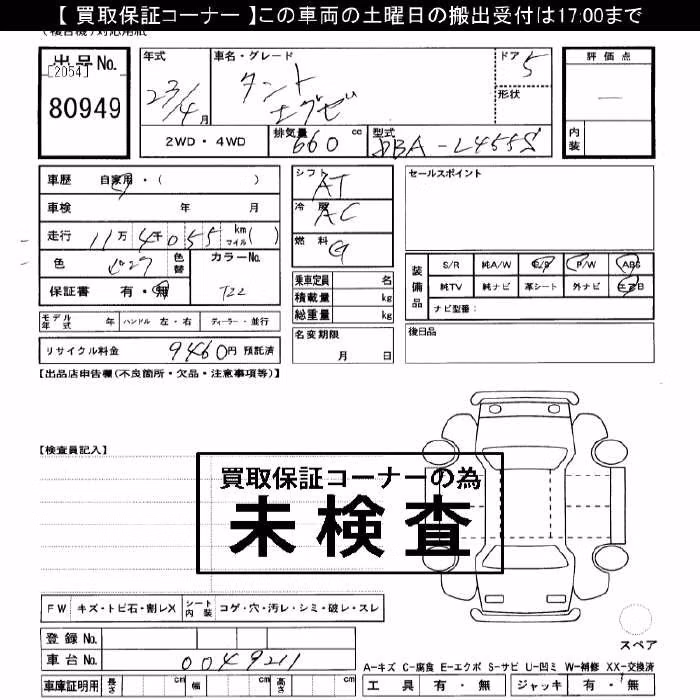 【 買取保証コーナー 】この車両の土曜日の搬出受付は17:00まで
出品No.
[2054]
80949
年式
23/4月
車名・グレード
タント
エグゼ
ドア 5
形状
評価点
内装
2WD・4WD
排気量 660 cc
型式 DBA-L455S
車歴 自家用・( )
車検 年 月
走行 11万4千055 km マイル( )
色
色替
カラーNo.
T22
保証書 有・無
シフト AT
冷房 AC
燃料 G
乗車定員 名
積載量 kg
総重量 kg
セールスポイント
装備品
S/R 純A/W P/S P/W ABS
純TV 純ナビ 革シート 外ナビ エアB
ナビ型番:
モデル年式 年 ハンドル 左・右 ディーラー・並行
リサイクル料金 9460円 預託済
名変期限
月 日
後日品
【出品店申告欄(不良箇所・欠品・注意事項等)】
【検査員記入】
買取保証コーナーの為
未検査
FW キズ・トビ石・割レX シート内装 コゲ・穴・汚レ・シミ・破レ・スレ
登録No.
車台No. 0049211
車庫証明用 長さ cm 幅 cm 高さ cm
スペア
A-キズ C-腐食 E-エクボ S-サビ U-凹ミ W-補修 XX-交換済
工具 有・無 ジャッキ 有・無